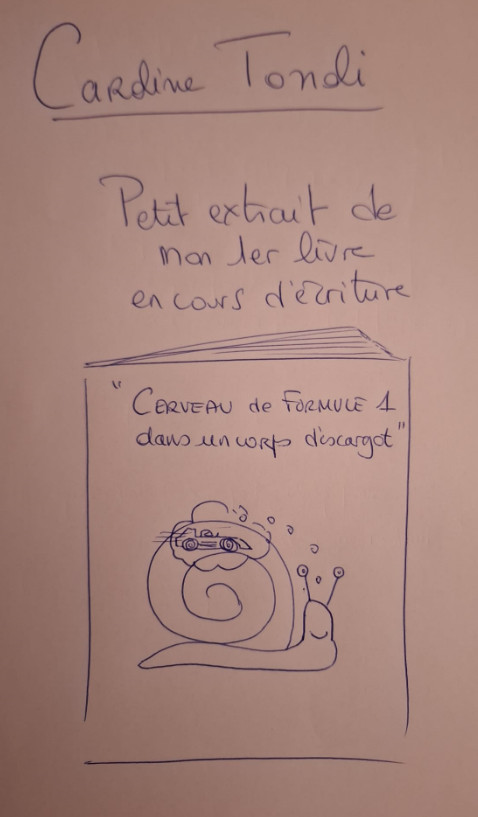 Cardine Tondi
Petit extrait de
mon 1er livre
en cours d'écriture
"CERVEAU de FORMULE 1
dans un corps d'escargot"